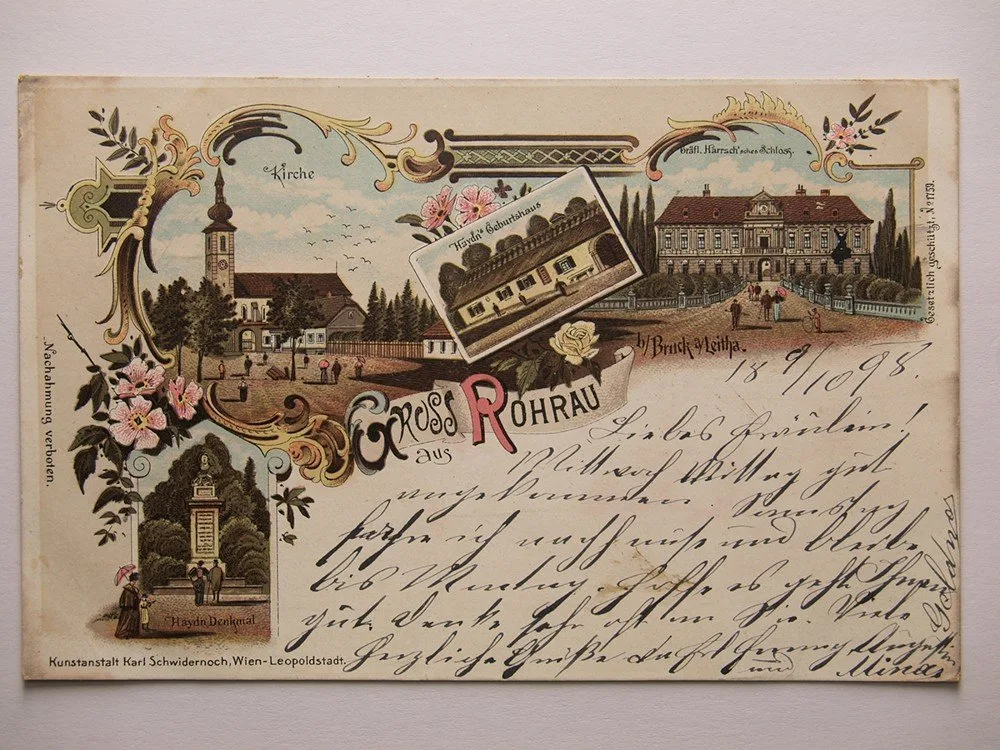 Kirche
Haydn's Geburtshaus
Gräfl. Harrsch'sches Schloss.
Gesetzlich geschützt. No 1753.
Nachahmung verboten.
Gruss
aus
Rohrau
b/ Bruck a/Leitha.
Haydn Denkmal
Kunstanstalt Karl Schwidernoch, Wien-Leopoldstadt.
18 9/10 98.
Liebes Fräulein!
Mittwoch Mittag gut
angekommen Samstag
fahre ich nach und bleibe
bis Montag. Hoffe es geht Ihnen
gut. Denke sehr oft an Sie. Viele
herzliche Grüße
und Minas